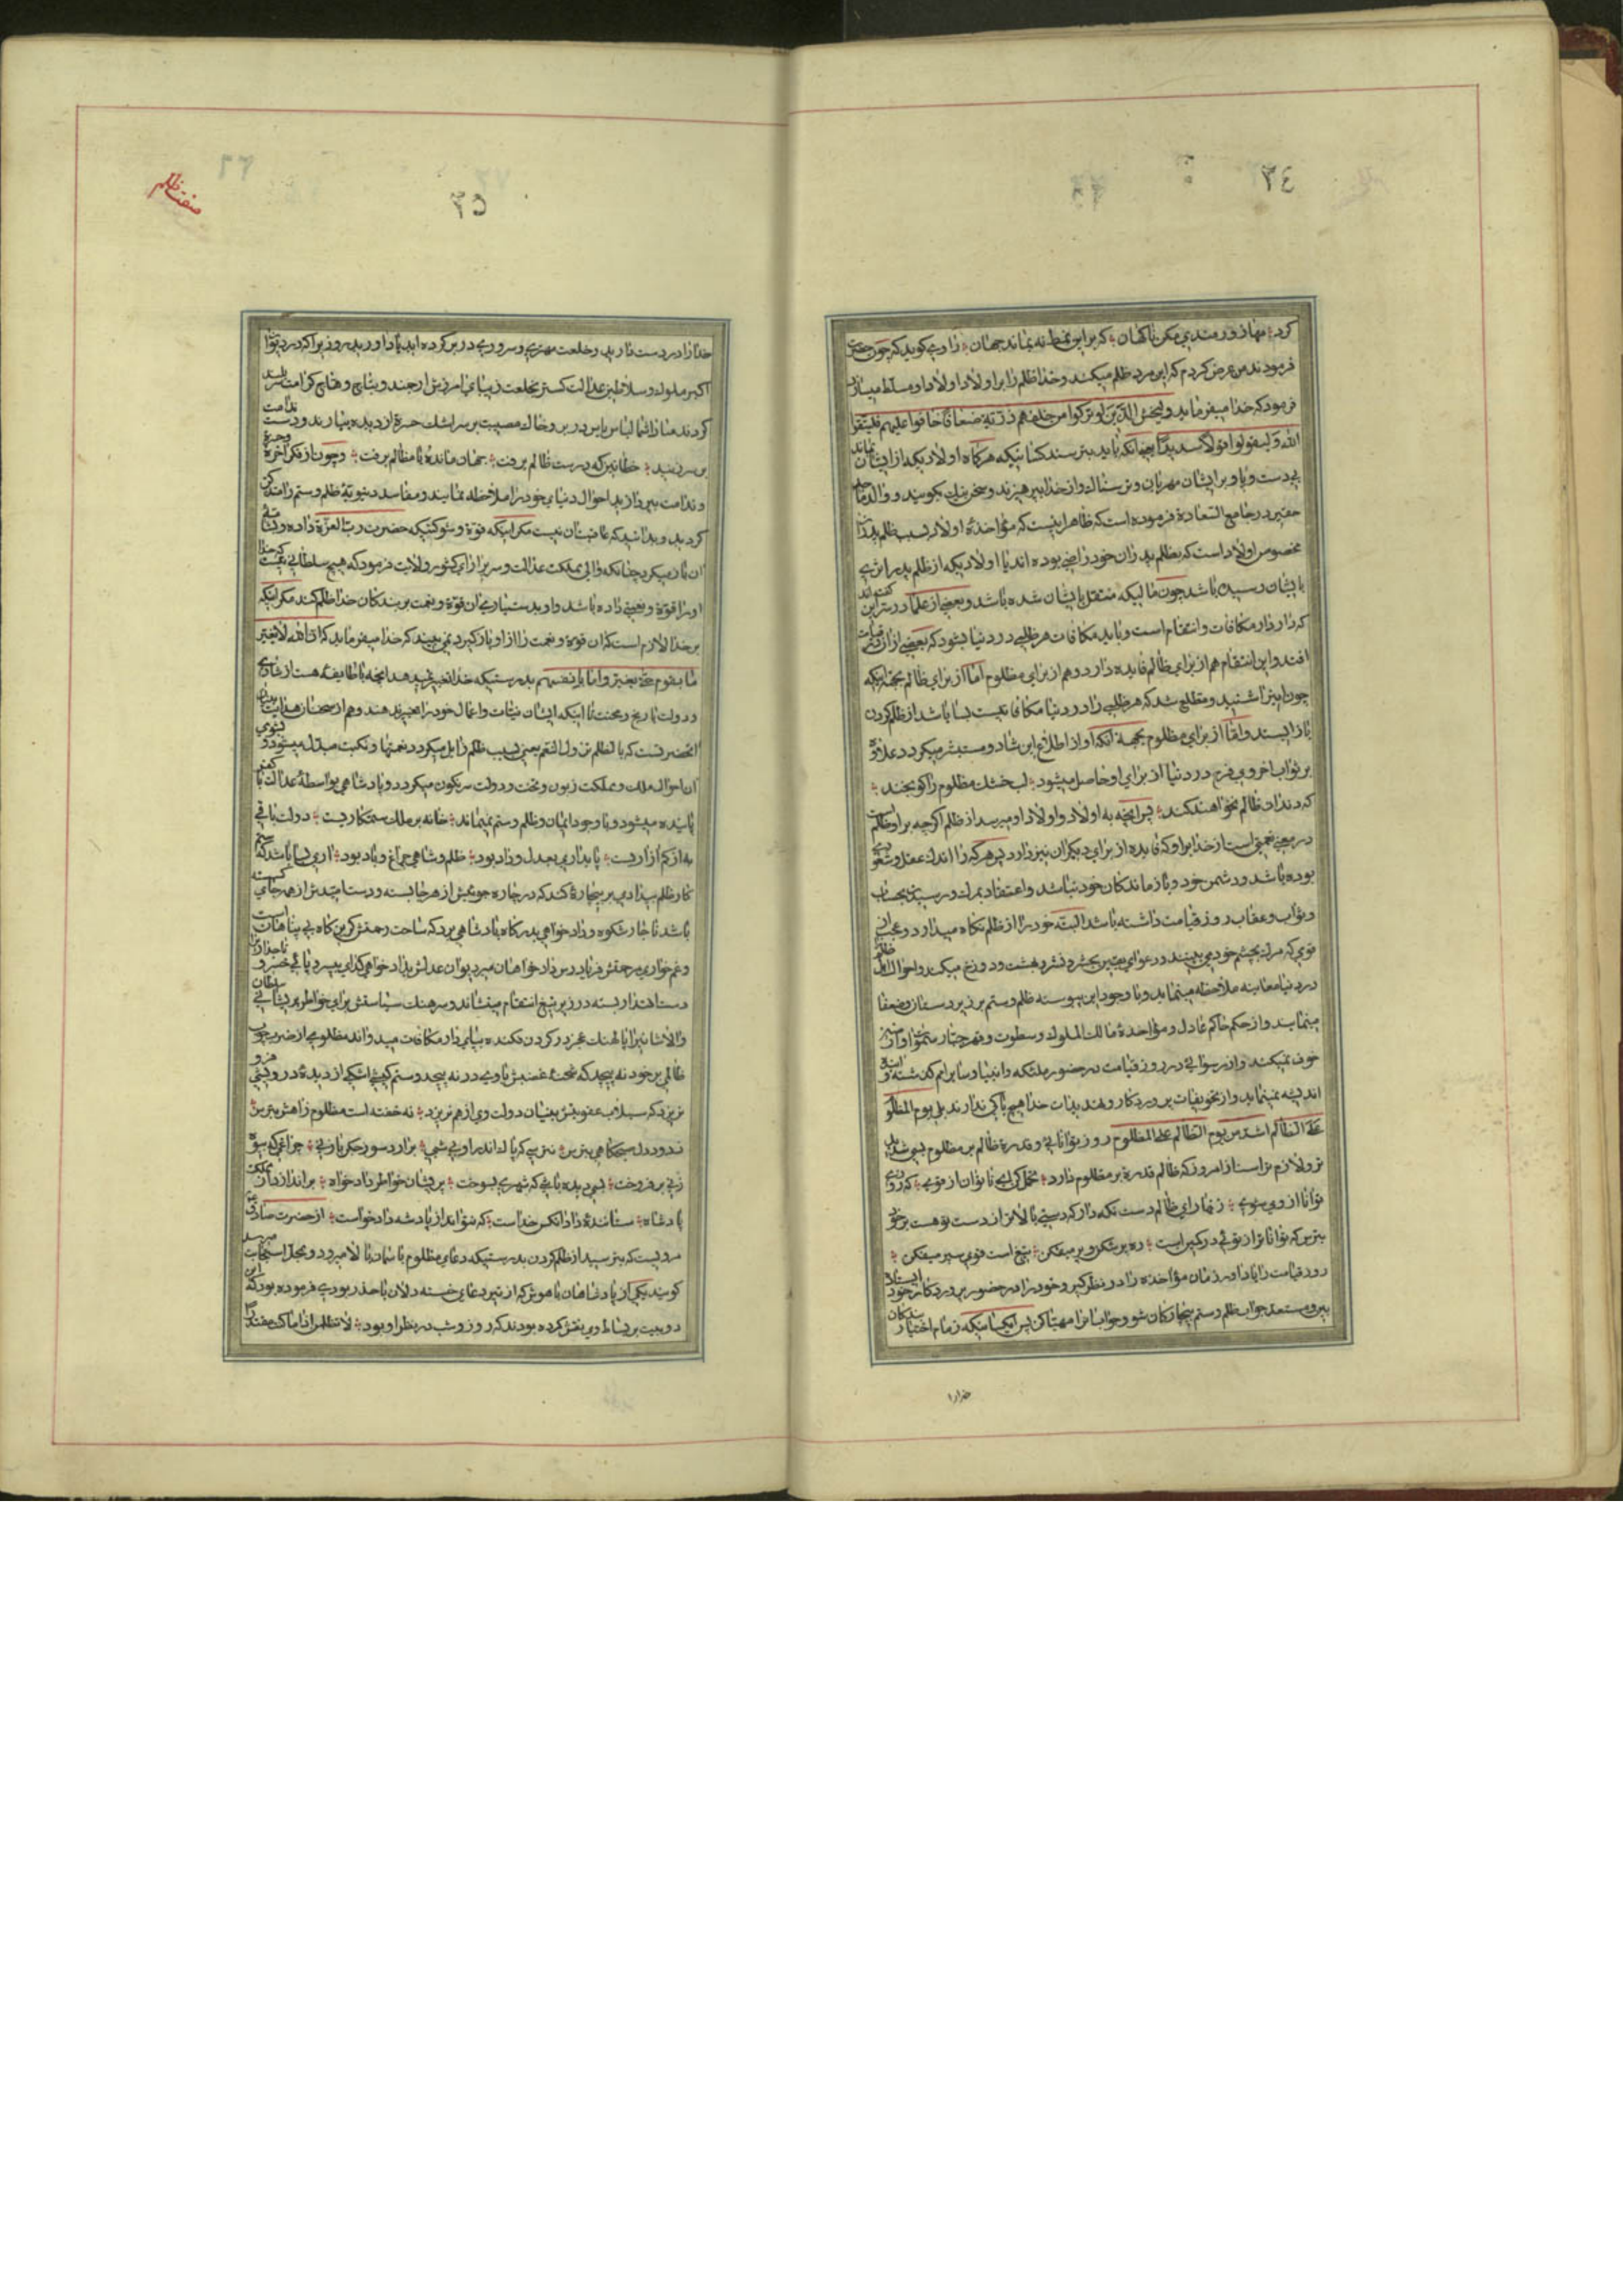 ٣٤
کرد؛ مها زورمندی مکن با کهان؛ که بر این نمط نه بماند جهان؛ راوی گوید که چون حضرت
فرمودند من عرض کردم که این مرد ظلم میکند و خدا ظالم را بر اولاد او اولاد اولاد او مسلط میسازد
فرمود که خدا میفرماید ولیخش الذین لو ترکوا من خلفهم ذریة ضعافا خافوا علیهم فلیتقوا
الله ولیقولوا قولا سدیدا یعنی آنکه باید بترسند کسانیکه هرگاه اولادیکه از ایشان بماند
بی دست و پا و بر ایشان مهربان و ترسناک و از خدا بپرهیزند و سخن نیک بگویند و والد ماجد
حقیر در جامع السعادة فرموده است که ظاهر اینست که مؤاخذهٔ اولاد بسبب ظلم پدران
مخصوص اولاد است که بظلم پدران خود راضی بوده اند یا اولادیکه از ظلم پدر اثری
بایشان رسیده باشد چون مالیکه منتقل بایشان شده باشد و بعضی از علما گفته اند در سر این
که دار دار مکافات و انتقام است و باید مکافات هر ظلمی در دنیا بشود که بعضی از آن بقیامت
افتد و این انتقام هم از برای ظالم فایده دارد و هم از برای مظلوم اما از برای ظالم بجهة اینکه
چون این را شنید و مطلع شد که هر ظلمی را در دنیا مکافاتیست بسا باشد از ظلم کردن
باز ایستد و اما از برای مظلوم بجهة آنکه او از اطلاع این شاد و مستبشر میگردد علاوه
بر ثواب اخروی فرح در دنیا از برای او حاصل میشود؛ لب خشک مظلوم را گو بخند؛
که دندان ظالم بخواهند کند؛ پس آنچه به اولاد و اولاد اولاد او میرسد از ظلم اگر چه بر او ظلم است
در معنی نعمتی است از خدا بر او که فایده از برای دیگران نیز دارد پس هر که را اندک عقل و شعوری
بوده باشد و دشمن خود و بازماندگان خود نباشد و اعتقاد بمرک و رسیدن بحساب
و ثواب و عقاب روز قیامت داشته باشد البته خود را از ظلم نگاه میدارد و عجب از
قومی که مرک بچشم خود می بینند و دعوای یقین بحشر و نشر و بهشت و دوزخ میکند و احوال اهل ظلم
در دنیا معاینه ملاحظه مینماید و با وجود این پیوسته ظلم و ستم بر زیردستان و ضعفا
مینمایند و از حکم حاکم عادل و مؤاخذهٔ مالک الملوک و سطوت و قهر جبار سموات و ارضین
خوف نمیکنند و از رسوائی در روز قیامت در حضور ملئکه و انبیا و سایر امم گذشته و آینده
اندیشه نمینماید و از تخویفات پروردگار و تهدیدات خدا هیچ باکی ندارند بلی یوم المظلوم
علی الظالم اشد من یوم الظالم علی المظلوم روز توانائی و قدرة ظالم بر مظلوم بسی شدید
تر و لازم تر است از امروز که ظالم قدرة بر مظلوم دارد؛ تحمل کن ای ناتوان از قوی؛ که روزی
توانا از وی شوی؛ زنهار ای ظالم دست نگه دار که دستی بالاتر از دست تو هست بر خود
بترس که توانا تر از توئی در کمین است؛ ره پر شکن و پر میفکن؛ تیغ است قوی سپر میفکن؛
روز قیامت را یاد آور زمان مؤاخذه را در نظر گیر و خود را در حضور پروردگار خود ایستاده
ببین و مستعد جواب ظلم و ستم بیچارگان شو و جواب آنرا مهیا کن پس ای کسانیکه زمام اختیار بندگان
خدا را
صفت ظلم
٣٥
خدا را در دست دارید و خلعت مهتری و سروری در بر کرده اید یاد آورید روزی را که در دیوان
اکبر ملوک و سلاطین عدالت گستر بخلعت زیبای آمرزش ارجمند و بتاج وهاج کرامت سربلند
گردند مبادا شما لباس یاس در بر و خاک مصیبت بر سر اشک حسرة از دیده ببارند و دست ندامت
بر سر زنید؛ خطا نبین که در دست ظالم برفت؛ جهان ماند و با مظالم برفت؛ و چون از فکر آخرة و حسرة
و ندامت بپردازید احوال دنیای خود را ملاحظه نمایند و مفاسد دنیویهٔ ظلم و ستم را متذکر
گردید و بدانید که عاقبتان نیست مگر اینکه قوة و شوکتیکه حضرت رب العزة داده وقتی
آن باز میگیرد چنانکه والی مملکت عدالت و سریر آرای کشور ولایت فرمود که هیچ سلطانی نیست که خدا
او را قوة و نعمتی داده باشد و او بدستیاری آن قوة و نعمت بر بندگان خدا ظلم کند مگر اینکه
بر خدا لازم است که آن قوة و نعمت را از او باز گیرد نمی بینید که خدا میفرماید که ان الله لا یغیر
ما بقوم حتی یغیروا ما بانفسهم بدرستیکه خدا تغییر نمیدهد آنچه با طایفه هست از عافیت
و دولت تا رنج و محنت تا اینکه ایشان نیات و اعمال خود را تغییر ندهند و هم از سخنان هدایت بنیان
آنحضرتست که بالظلم تزول النعم یعنی بسبب ظلم زایل میگردد نعمتها و نکبت مبدل میشود و بشومی
آن احوال ملک و مملکت زبون و تخت و دولت سرنگون میگردد و پادشاهی بواسطهٔ عدالت با کفر
پاینده میشود و با وجود ایمان و ظلم و ستم نمیماند؛ خانه بر ملک ستمکاریست؛ دولت باقی
به از کم آزاریست؛ پایداری بعدل و داد بود؛ ظلم و شاهی چراغ و باد بود؛ آری بسا باشد که ستم
کار ظلم بیدادی بر بیچارهٔ کند که در چاره جوئیش از هر جا بسته و دست امیدش از همه جای گسسته
باشد ناچار شکوه و دادخواهی بدرگاه پادشاهی برد که ساحت رحمتش گریزگاه بی پناهان است
و غم خواری مرحمتش فریادرس دادخواهان میر دیوان عدلش بدادخواهی گدای بی سر و پائی خسرو تاجداری را
دست اقتدار بسته در زیر تیغ انتقام مینشاند و سرهنگ سیاستش برای خاطر پریشانی سلطان
والاشانی را پالهنگ عجز در گردن فکنده بپای دار مکافات میدواند مظلومی از ضرب چوب
ظالمی بر خود نه پیچد که شحنه غضبش بازوی در نه پیچد و ستم کیشی اشکی از دیدهٔ درویشی فرو
نریزد که سیلاب عقوبتش بنیان دولت وی از هم نریزد؛ نه خفته است مظلوم ز آهش بترس
ز دود دل صبحگاهی بترس؛ نترسی که پاک اندرونی شبی؛ برآرد سوز جگر یا ربی؛ چراغی که بیوه
زنی برفروخت؛ بسی دیده باشی که شهری بسوخت؛ پریشانی خاطر دادخواه؛ براندازد از مملکت
پادشاه؛ ستانندهٔ داد آنکس خداست؛ که نتواند از پادشه دادخواست؛ از حضرت صادق ع
مرویست که بترسید از ظلم کردن بدرستیکه دعای مظلوم بآسمان بالا میرود و بمحل استجابت میرسد
گویند یکی از پادشاهان باهوش که از تیر دعای خسته دلان باحذر بودی فرموده بود که این
دو بیت بر بساط وی نقش کرده بودند که روز و شب در نظر او بود؛ لا تظلمن اذا ما کنت مقتدرا